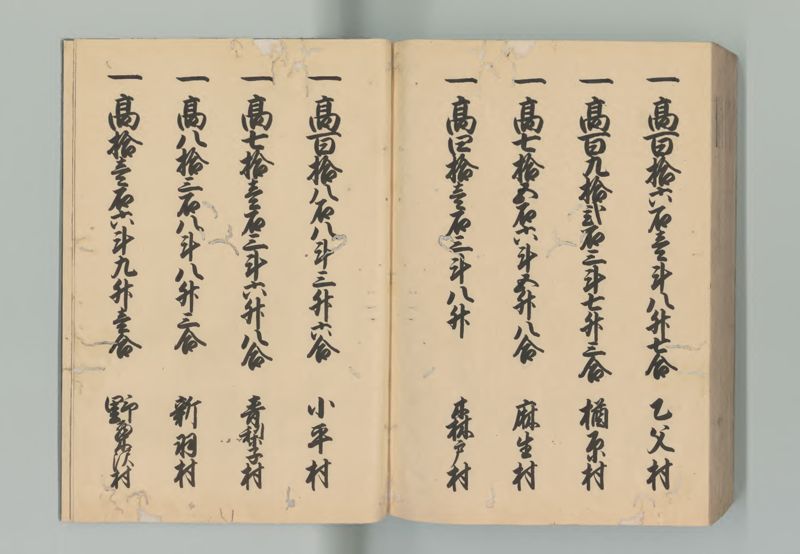 一 高百拾六石壱斗八升七合 乙父村
一 高百九拾弐石三斗七升三合 楢原村
一 高七拾五石六斗五升八合 麻生村
一 高四拾壱石三斗八升 森戸村
一 高百拾八石八斗三升六合 小平村
一 高七拾壱石三斗六升八合 青梨子村
一 高八拾三石八斗八升三合 新羽村
一 高拾壱石六斗九升壱合 野栗沢村